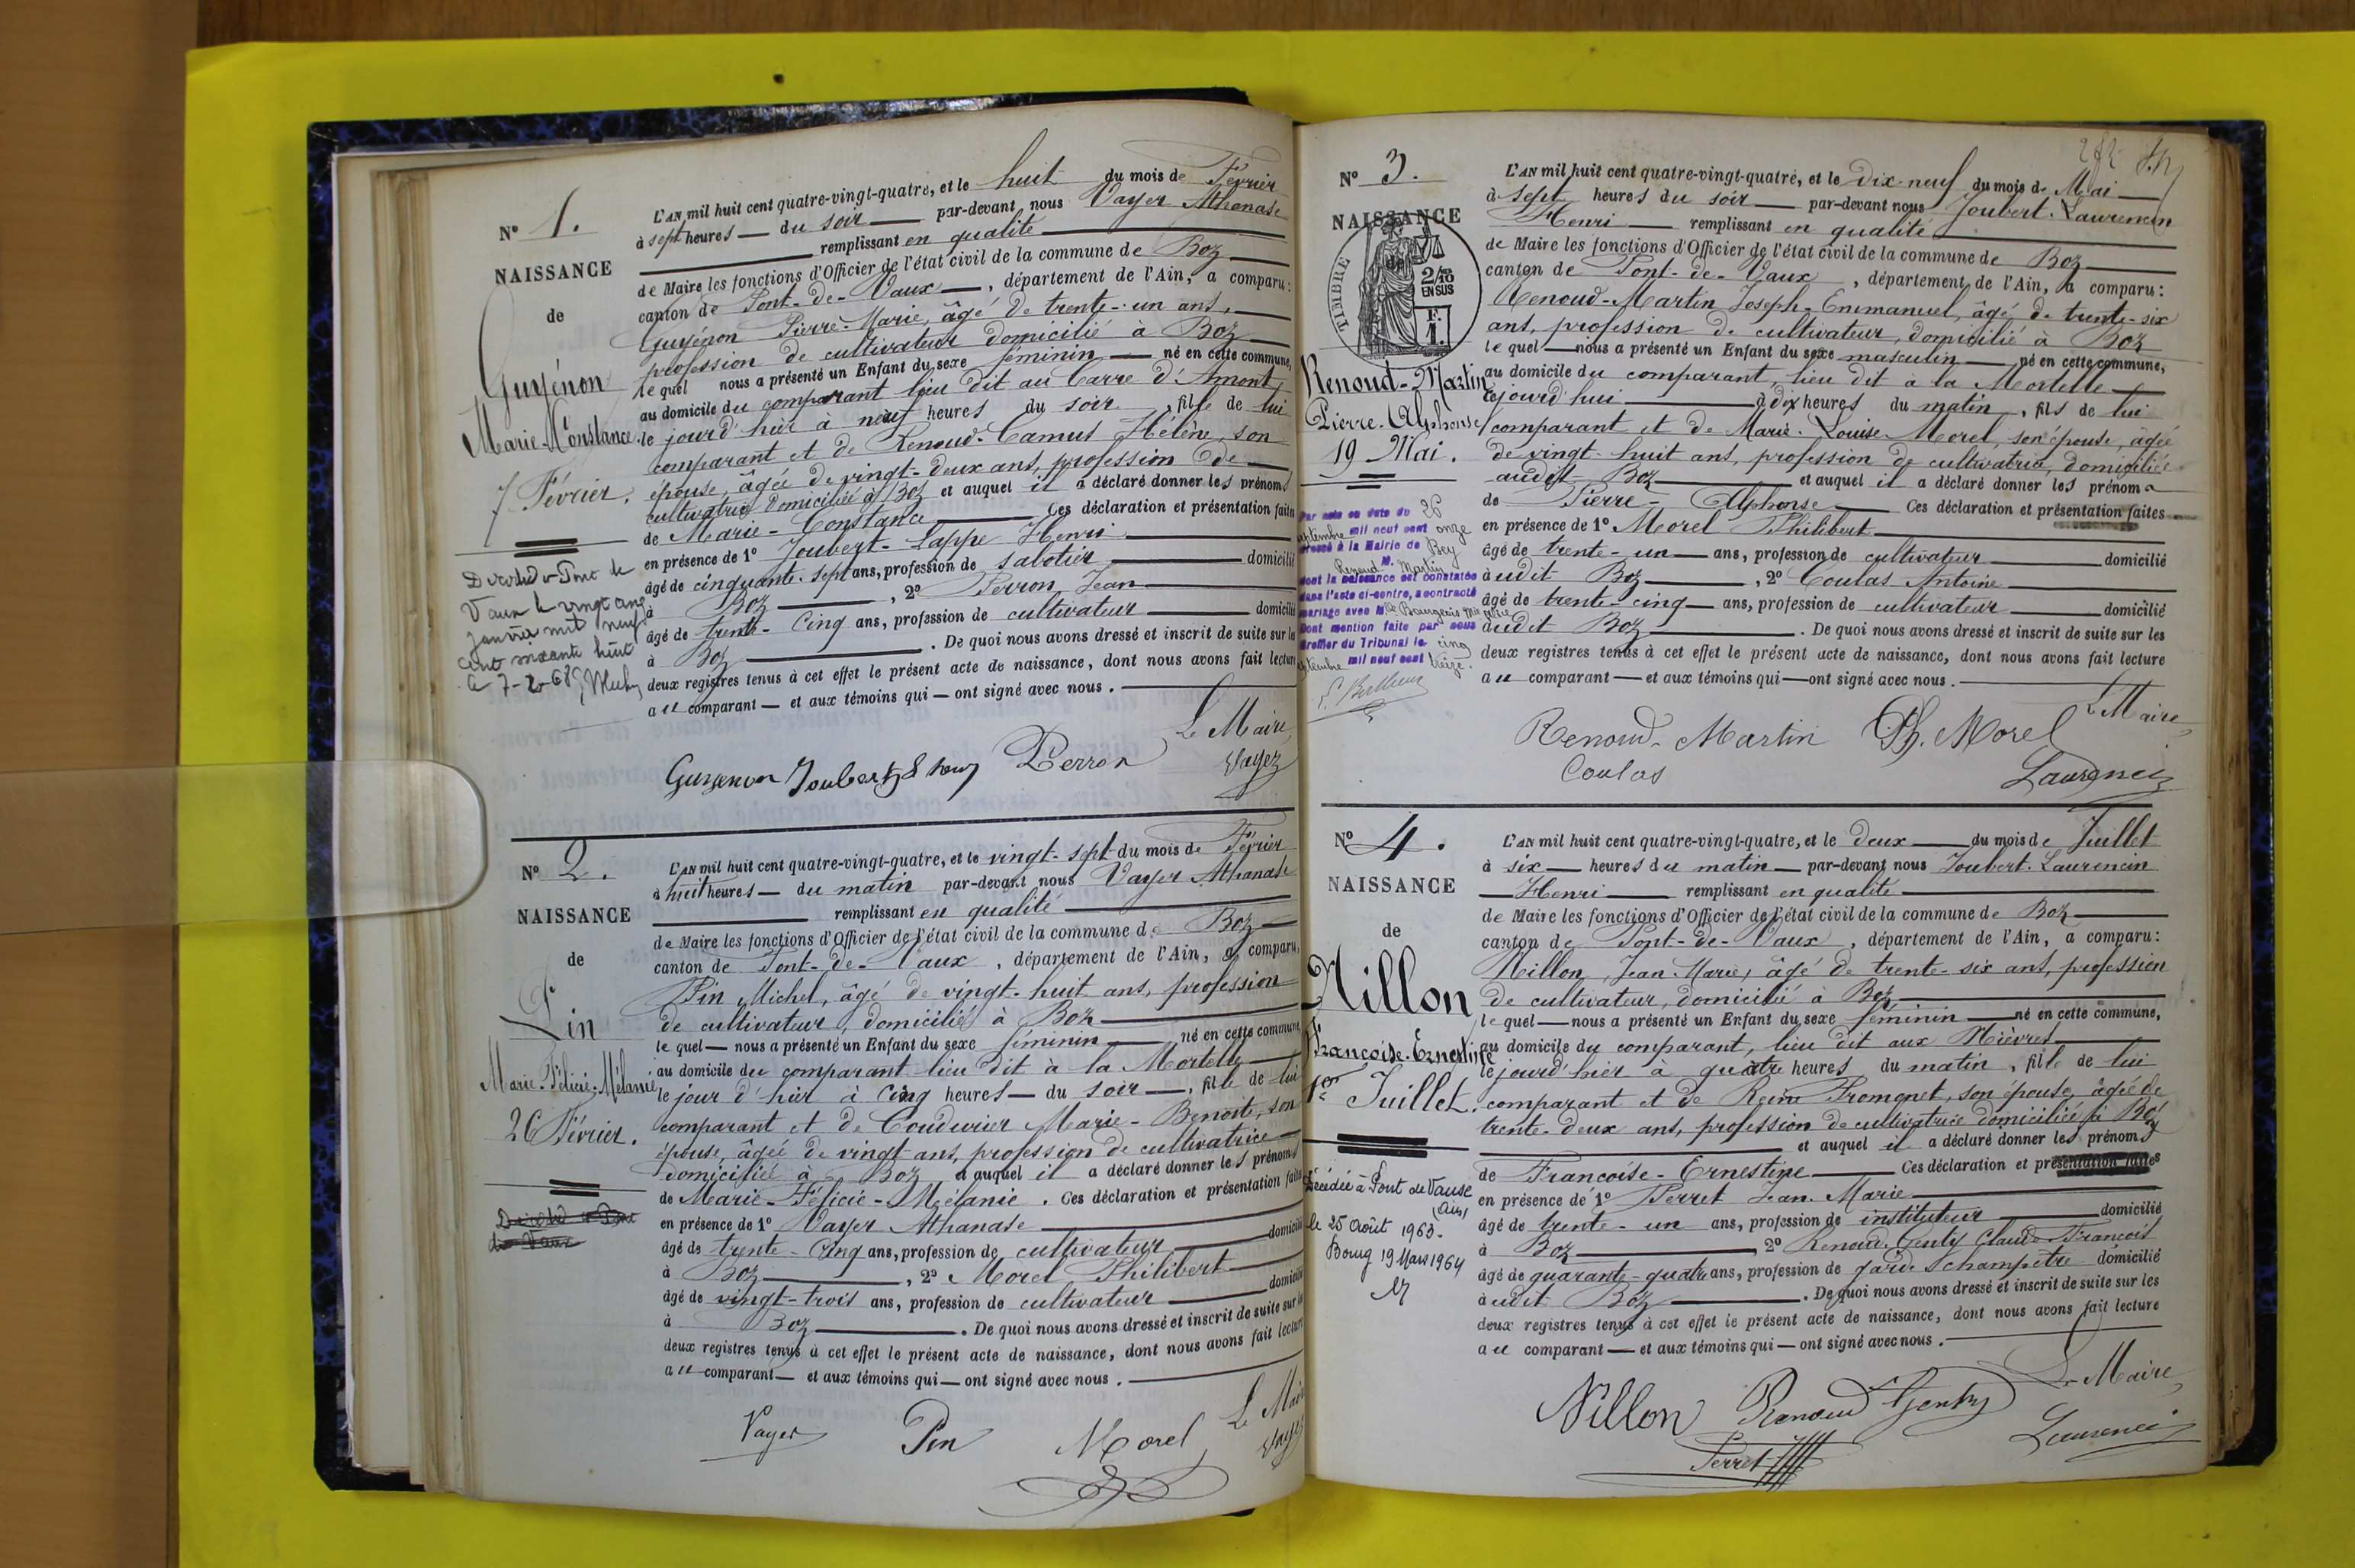 N° 1.
NAISSANCE
de
Guyénon
Marie-Constance
7 Février.
Décédée à Pont de
Vaux le vingt cinq
janvier mil neuf
cent soixante huit
L'AN mil huit cent quatre-vingt-quatre, et le huit du mois de Février
à sept heures — du soir — par-devant nous Vayer Athanase
remplissant en qualité
de Maire les fonctions d'Officier de l'état civil de la commune de Boz
canton de Pont-de-Vaux —, département de l'Ain, a comparu:
Guyénon Pierre-Marie, âgé de trente-un ans,
profession de cultivateur domicilié à Boz
le quel nous a présenté un Enfant du sexe féminin — né en cette commune,
au domicile du comparant lieu dit au Carre d'Amont,
le jourd'hier à neuf heures du soir, fille de lui
comparant et de Renoud-Camus Hélène, son
épouse, âgée de vingt-deux ans, profession de
cultivatrice domiciliée à Boz et auquel il a déclaré donner les prénoms
de Marie-Constance — Ces déclaration et présentation faites
en présence de 1° Joubert-Lappe Henri
âgé de cinquante-sept ans, profession de sabotier — domicilié
à Boz —, 2° Perron Jean
âgé de trente-cinq ans, profession de cultivateur — domicilié
à Boz — . De quoi nous avons dressé et inscrit de suite sur les
deux registres tenus à cet effet le présent acte de naissance, dont nous avons fait lecture
au comparant — et aux témoins qui — ont signé avec nous. —
Le Maire,
Guyénon Joubert Perron Vayer
N° 2.
NAISSANCE
de
Pin
Marie-Félicie-Mélanie
26 Février.
L'AN mil huit cent quatre-vingt-quatre, et le vingt-sept du mois de Février
à huit heures — du matin par-devant nous Vayer Athanase
remplissant en qualité
de Maire les fonctions d'Officier de l'état civil de la commune de Boz
canton de Pont-de-Vaux, département de l'Ain, a comparu,
Pin Michel, âgé de vingt-huit ans, profession
de cultivateur, domicilié à Boz
le quel — nous a présenté un Enfant du sexe féminin — né en cette commune
au domicile du comparant lieu dit à la Mortelle
le jour d'hier à cinq heures — du soir —, fille de lui
comparant et de Coudurier Marie-Benoite, son
épouse, âgée de vingt ans, profession de cultivatrice
domiciliée à Boz et auquel il a déclaré donner les prénoms
de Marie-Félicie-Mélanie. Ces déclaration et présentation faites
en présence de 1° Vayer Athanase
âgé de trente-cinq ans, profession de cultivateur — domicilié
à Boz —, 2° Morel Philibert
âgé de vingt-trois ans, profession de cultivateur — domicilié
à Boz — . De quoi nous avons dressé et inscrit de suite sur les
deux registres tenus à cet effet le présent acte de naissance, dont nous avons fait lecture
au comparant — et aux témoins qui — ont signé avec nous. —
Le Maire
Vayer Pin Morel Vayer
N° 3.
NAISSANCE
de
TIMBRE
2/10
EN SUS
F.
1.
Renoud-Martin
Pierre-Alphonse
19 Mai.
Par acte en date du 26
septembre mil neuf cent onze
dressé à la Mairie de Bey
M.
Renoud-Martin
dont la naissance est constatée
dans l'acte ci-contre, a contracté
mariage avec Mlle
Dont mention faite par nous
Greffier du Tribunal le cinq
septembre mil neuf cent treize.
L'AN mil huit cent quatre-vingt-quatre, et le dix-neuf du mois de Mai —
à sept heures du soir — par-devant nous Joubert-Laurencin
Henri — remplissant en qualité
de Maire les fonctions d'Officier de l'état civil de la commune de Boz
canton de Pont-de-Vaux, département de l'Ain, a comparu:
Renoud-Martin Joseph-Emmanuel, âgé de trente-six
ans, profession de cultivateur, domicilié à Boz
le quel — nous a présenté un Enfant du sexe masculin — né en cette commune,
au domicile du comparant, lieu dit à la Mortelle —
cejourd'hui — à dix heures du matin, fils de lui
comparant et de Marie-Louise Morel, son épouse, âgée
de vingt-huit ans, profession de cultivatrice, domiciliée
audit Boz — et auquel il a déclaré donner les prénoms
de Pierre-Alphonse — Ces déclaration et présentation faites
en présence de 1° Morel Philibert
âgé de trente-un — ans, profession de cultivateur — domicilié
audit Boz —, 2° Coulas Antoine
âgé de trente-cinq — ans, profession de cultivateur — domicilié
audit Boz — . De quoi nous avons dressé et inscrit de suite sur les
deux registres tenus à cet effet le présent acte de naissance, dont nous avons fait lecture
au comparant — et aux témoins qui — ont signé avec nous. —
Le Maire,
Renoud-Martin Ph. Morel
Coulas Laurencin
N° 4.
NAISSANCE
de
Nillon
Françoise-Ernestine
1er Juillet.
Décédée à Pont de Vaux
(Ain)
le 25 Août 1963.
Bourg 19 Mars 1964
L'AN mil huit cent quatre-vingt-quatre, et le deux — du mois de Juillet
à six — heures du matin — par-devant nous Joubert-Laurencin
Henri — remplissant en qualité
de Maire les fonctions d'Officier de l'état civil de la commune de Boz
canton de Pont-de-Vaux, département de l'Ain, a comparu:
Nillon, Jean Marie, âgé de trente-six ans, profession
de cultivateur, domicilié à Boz
le quel — nous a présenté un Enfant du sexe féminin — né en cette commune,
au domicile du comparant, lieu dit aux Nièvres
le jourd'hier à quatre heures du matin, fille de lui
comparant et de Reine Fromonet, son épouse, âgée de
trente-deux ans, profession de cultivatrice domiciliée à Boz
et auquel il a déclaré donner les prénoms
de Françoise-Ernestine — Ces déclaration et présentation faites
en présence de 1° Perret Jean-Marie
âgé de trente-un ans, profession de instituteur — domicilié
à Boz — 2° Renoud-Genty Claude-François
âgé de quarante-quatre ans, profession de garde champêtre domicilié
audit Boz — . De quoi nous avons dressé et inscrit de suite sur les
deux registres tenus à cet effet le présent acte de naissance, dont nous avons fait lecture
au comparant — et aux témoins qui — ont signé avec nous. —
Le Maire,
Nillon Renoud Genty Laurencin
Perret